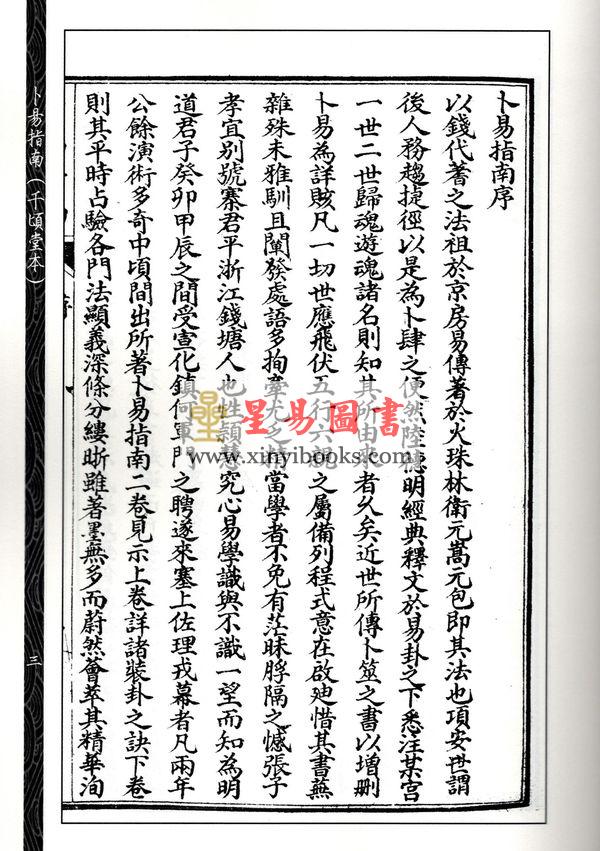 卜易指南序
以錢代蓍之法祖於京房易傳著於火珠林衛元嵩元包即其法也項安世謂
後人務趨捷徑以是為卜肆之便然陸德明經典釋文於易卦之下悉注某宮
一世二世歸魂遊魂諸名則知其所由來者久矣近世所傳卜筮之書以增刪
卜易為詳賅凡一切世應飛伏五行六親之屬備列程式意在啟迪惜其書蕪
雜殊未雅馴且闡發處語多拘牽尤之精當學者不免有茫昧脬隔之憾張子
孝宜別號寨君平浙江錢塘人也性穎慧究心易學識與不識一望而知為明
道君子癸卯甲辰之間受宣化鎮何軍門之聘遂來塞上佐理戎幕者凡兩年
公餘演術多奇中頃間出所著卜易指南二卷見示上卷詳諸裝卦之訣下卷
則其平時占驗各門法顯義深條分縷晰雖著墨無多而蔚然薈萃其精華洵
卜易指南（千頃堂本）
三
星易圖書
www.xinyibooks.com